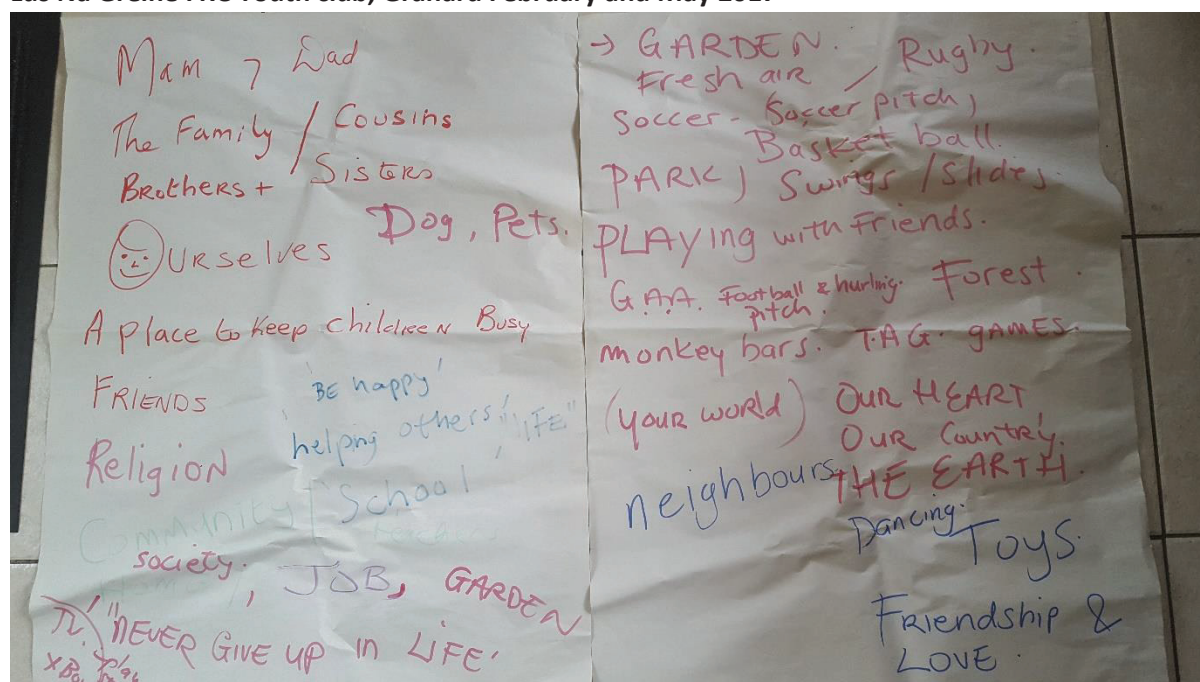 Mam , Dad
The Family / Cousins
Brothers + / Sisters
Dog, Pets.
Ourselves
A place to keep children Busy
FRIENDS
'BE happy'
'helping others' "LIFE"
Religion
Community / School
society. , JOB, GARDEN
"NEVER GIVE UP in LIFE'
→ GARDEN.
Fresh air / Rugby.
Soccer - Soccer pitch,
Basket ball.
PARK, Swings / Slides.
PLAYing with Friends.
G.A.A. Football & hurling. Forest
pitch.
monkey bars. T.A.G. games.
(your world) OUR HEART,
OUR Country.
neighbours THE EARTH.
Dancing.
Toys.
Friendship &
LOVE.